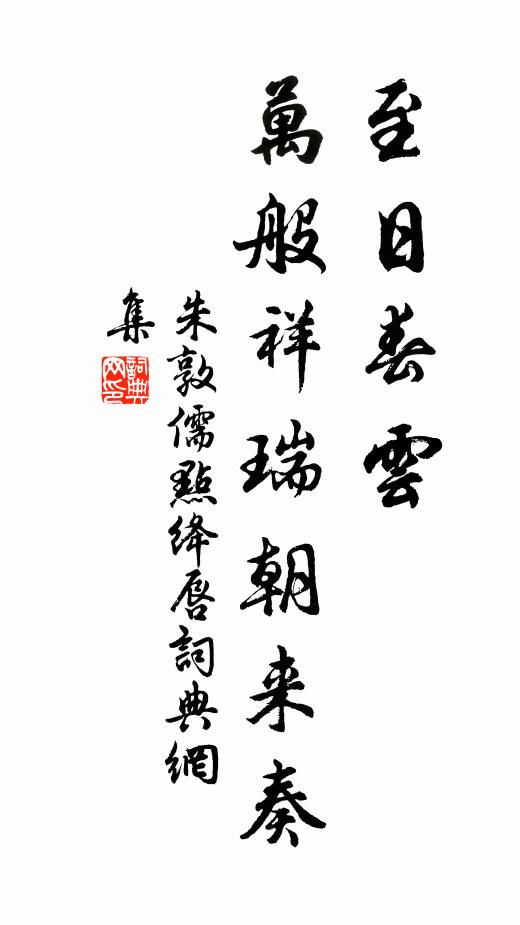 至日春雲
萬般祥瑞朝来奏
朱敦儒點絳唇詞典網
集
詞典
网印